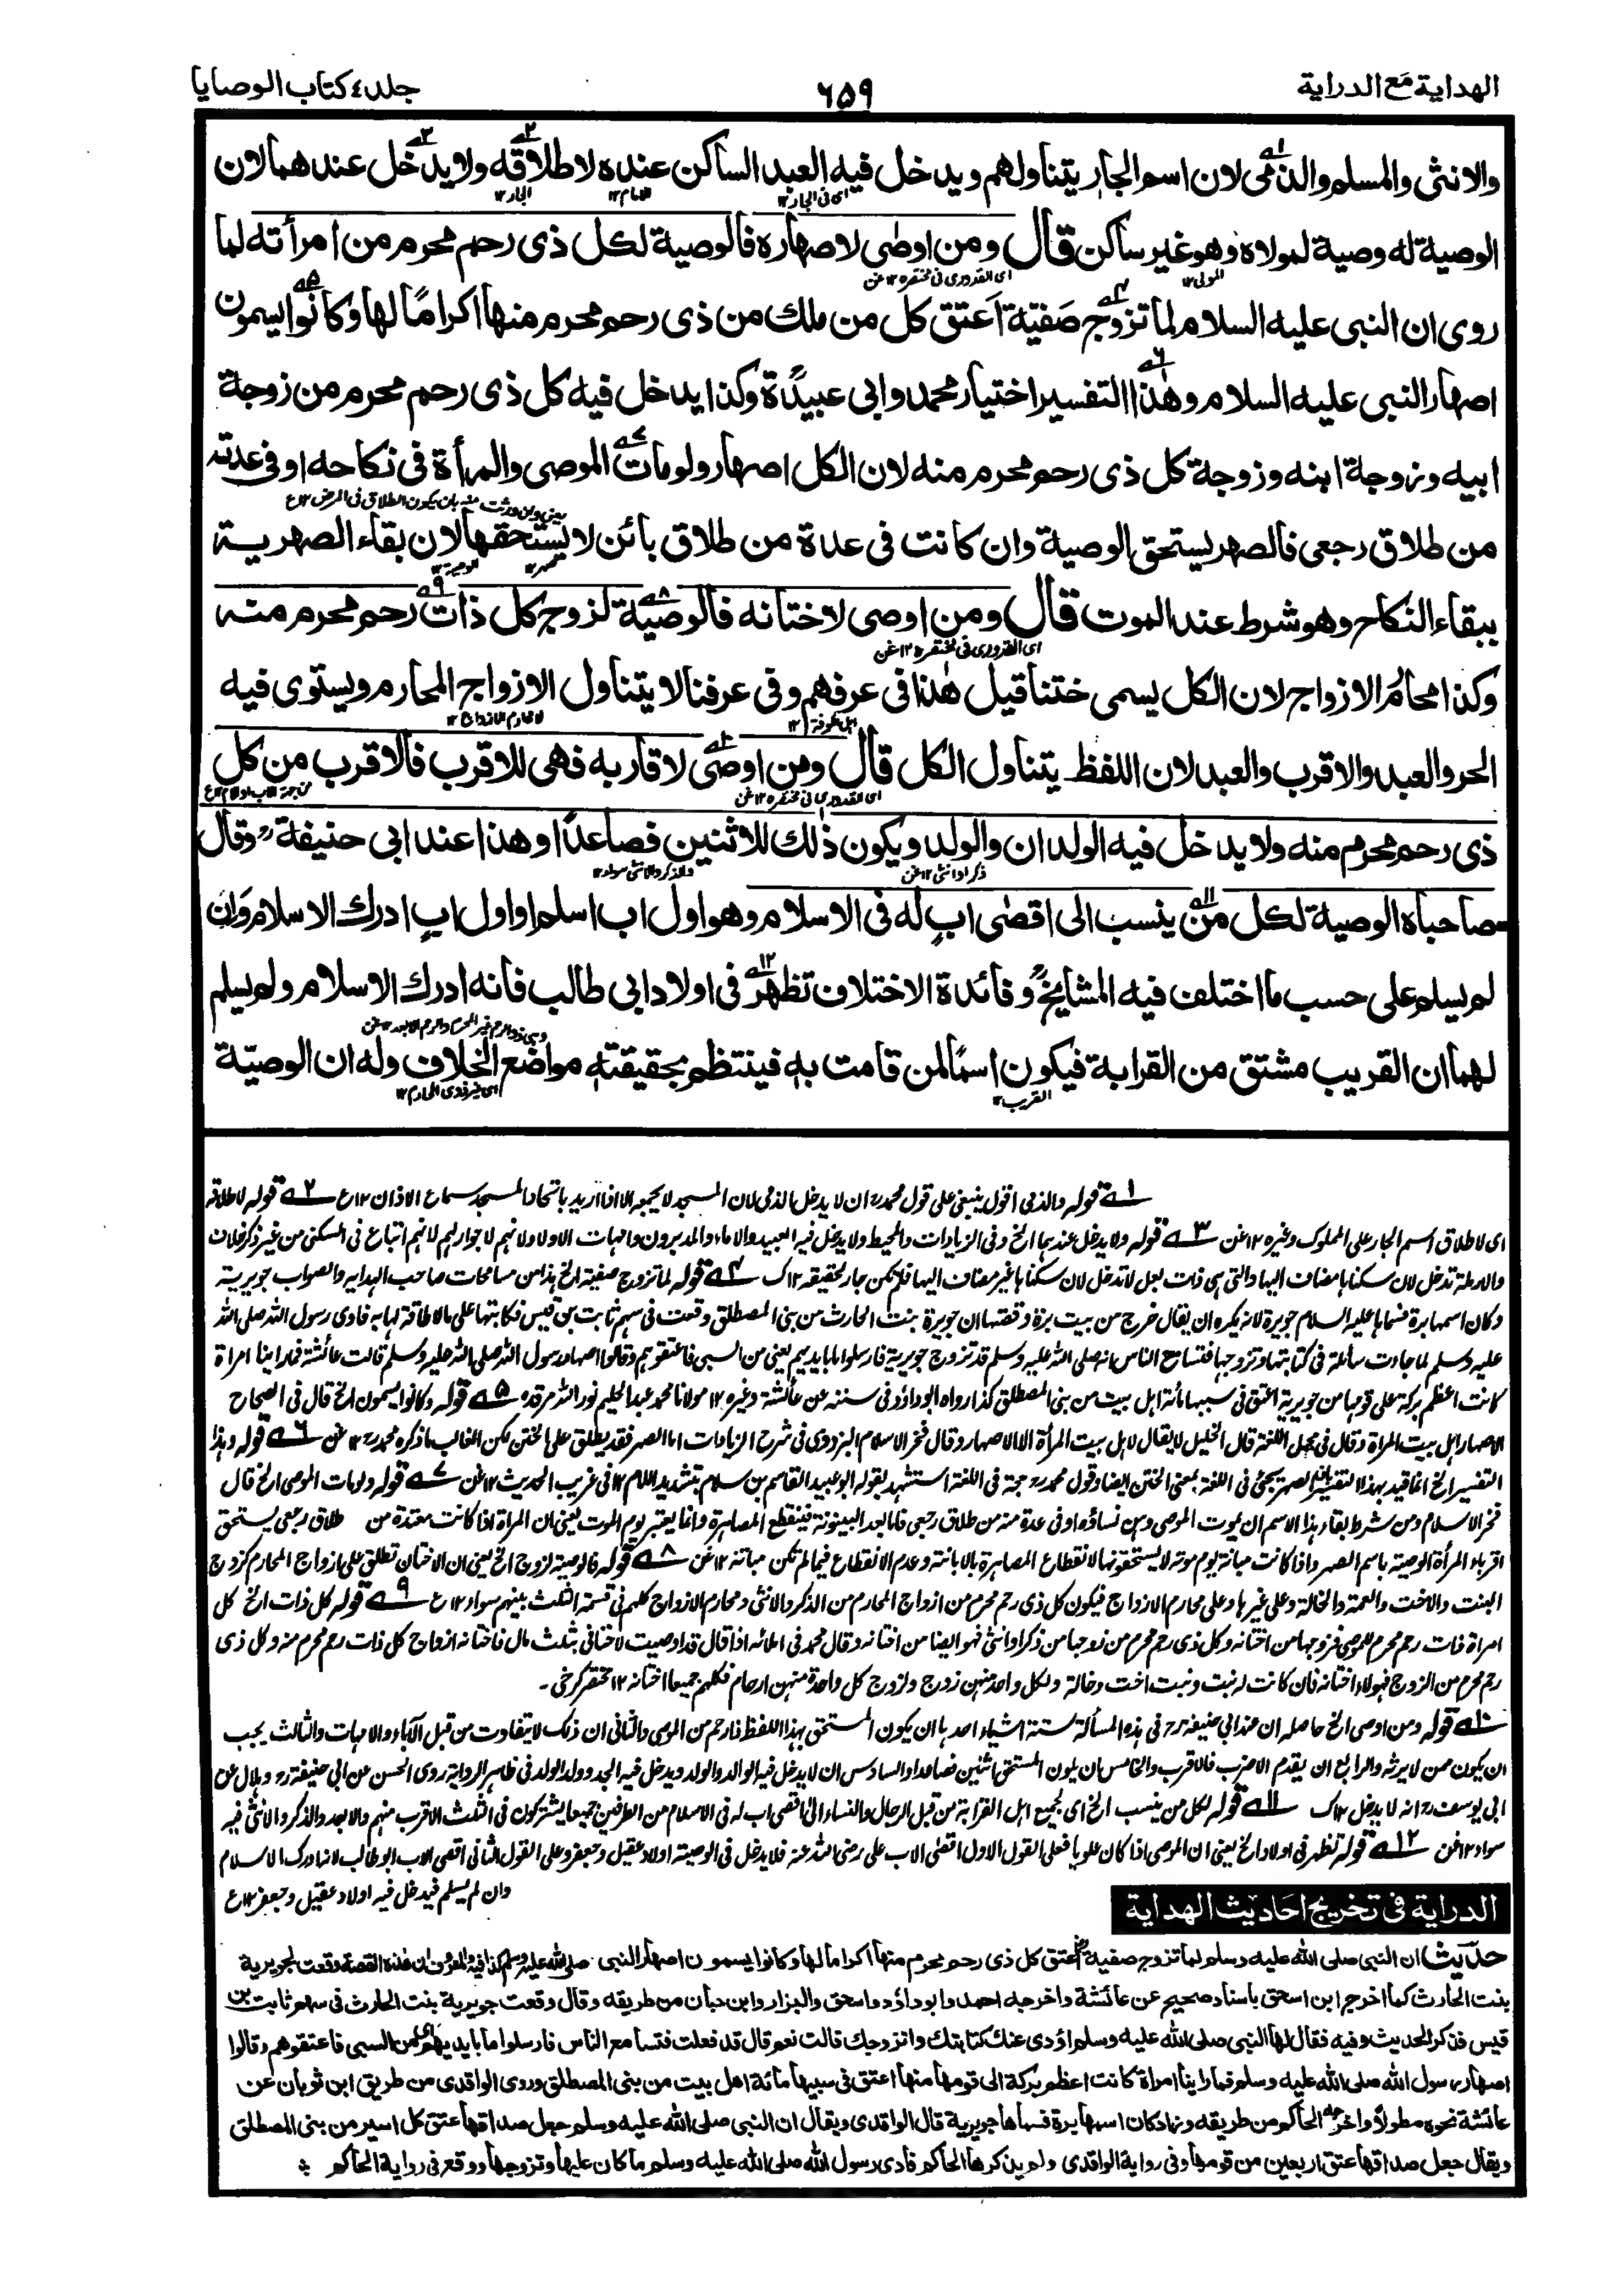 الهداية مع الدراية
٦٥٩
جلد ٤ كتاب الوصايا
والانثى والمسلم والذمى لان اسم الجار يتناولهم ويدخل فيه العبد الساكن عنده لاطلاقه ولا يدخل عندهما لان
اى فى الجار ١٢ الامام ١٢ الجار ١٢
الوصية له وصية لمولاه وهو غير ساكن قال ومن اوصى لاصهاره فالوصية لكل ذى رحم محرم من امرأته لما
المولى ١٢ اى القدورى فى مختصره ١٢ عن
روى ان النبى عليه السلام لما تزوج صفية اعتق كل من ملك من ذى رحم محرم منها اكراما لها وكانوا يسمون
اصهار النبى عليه السلام وهذا التفسير اختيار محمد وابى عبيدة وكذا يدخل فيه كل ذى رحم محرم من زوجة
ابيه وزوجة ابنه وزوجة كل ذى رحم محرم منه لان الكل اصهار ولو مات الموصى والمرأة فى نكاحه او فى عدته
من طلاق رجعى فالصهر يستحق الوصية وان كانت فى عدة من طلاق بائن لا يستحقها لان بقاء الصهرية
ببقاء النكاح وهو شرط عند الموت قال ومن اوصى لاختانه فالوصية لزوج كل ذات رحم محرم منه
اى القدورى فى مختصره ١٢ عن
وكذا محارم الازواج لان الكل يسمى ختنا قيل هذا فى عرفهم وفى عرفنا لا يتناول الازواج المحارم ويستوى فيه
اهل الكوفة ١٢ لا محارم الازواج ١٢
الحر والعبد والاقرب والعبد لان اللفظ يتناول الكل قال ومن اوصى لاقاربه فهى للاقرب فالاقرب من كل
اى القدورى فى مختصره ١٢ عن من جهة الاب او الام ١٢ ع
ذى رحم محرم منه ولا يدخل فيه الوالدان والولد ويكون ذلك للاثنين فصاعدا وهذا عند ابى حنيفة رح وقال
ذكر او انثى ١٢ عن والذكر والانثى سواء ١٢
صاحباه الوصية لكل من ينسب الى اقصى اب له فى الاسلام وهو اول اب اسلم او اول اب ادرك الاسلام وان
لم يسلم على حسب ما اختلف فيه المشايخ رح وفائدة الاختلاف تظهر فى اولاد ابى طالب فانه ادرك الاسلام ولم يسلم
لهما ان القريب مشتق من القرابة فيكون اسما لمن قامت به فينتظم بحقيقته مواضع الخلاف وله ان الوصية
القريب ١٢ اى غير ذوى المحارم ١٢
١ قوله والذمى اقول ينبغى على قول محمد رح ان لا يدخل الذمى لان المسجد لا يجمعه الا اذا اريد باتحاد المسجد سماع الاذان ١٢ ع ٢ قوله لاطلاقه
اى لاطلاق اسم الجار على المملوك وغيره ١٢ عن ٣ قوله ولا يدخل عندهما الخ وفى الزيادات والمحيط ولا يدخل فيه العبيد والاماء والمدبرون وامهات الاولاد لانهم لا جوار لهم لانهم اتباع فى السكنى من غير ذكر خلاف
والارملة تدخل لان سكناها مضاف اليها والتى هى ذات بعل لا تدخل لان سكناها غير مضاف اليها فلم تكن جار حقيقة ١٢ ك ٤ قوله لما تزوج صفية الخ هذا من مسامحات صاحب الهداية والصواب جويرية
وكان اسمها برة فسماها عليه السلام جويرة لانه يكره ان يقال خرج من بيت برة وقصتها ان جويرة بنت الحارث من بنى المصطلق وقعت فى سهم ثابت بن قيس فكاتبها على مالا طاقة لها به فادى رسول الله صلى الله
عليه وسلم لما جاءت سائلة فى كتابتها وتزوجها فتسامع الناس انه صلى الله عليه وسلم قد تزوج جويرية فارسلوا ما بايديهم يعنى من السبى فاعتقوهم وقالوا اصهار رسول الله صلى الله عليه وسلم قالت عائشة فما راينا امراة
كانت اعظم بركة على قومها من جويرية اعتق فى سببها مائة اهل بيت من بنى المصطلق كذا رواه ابو داؤد فى سننه عن عائشة وغيره ١٢ مولانا محمد عبد الحليم نور الله مرقده ٥ قوله وكانوا يسمون الخ قال فى الصحاح
الاصهار اهل بيت المرأة وقال فى مجمل اللغة قال الخليل لا يقال لاهل بيت المرأة الا الاصهار وقال فخر الاسلام البزدوى فى شرح الزيادات اما الصهر فقد يطلق على الختن لكن الغالب ما ذكره محمد رح ١٢ عن ٦ قوله وهذا
التفسير الخ انما قيد بهذا التفسير لان الصهر يجئ فى اللغة بمعنى الختن ايضا وقول محمد رح حجة فى اللغة استشهد بقوله ابو عبيد القاسم بن سلام بتشديد اللام ١٢ فى غريب الحديث ١٢ عن ٧ قوله ولو مات الموصى الخ قال
فخر الاسلام ومن شرط بقاء هذا الاسم ان يموت الموصى وهن نساؤه او فى عدة منه من طلاق رجعى فاما بعد البينونة فينقطع المصاهرة وانما يعتبر يوم الموت يعنى ان المرأة اذا كانت معتدة من طلاق رجعى يستحق
اقرباء المرأة الوصية باسم الصهر واذا كانت مبانة يوم موته لا يستحقونها لانقطاع المصاهرة بالابانة وعدم الانقطاع فيما لم تكن مبانة ١٢ عن ٨ قوله فالوصية لزوج الخ يعنى ان الاختان تطلق على ازواج المحارم كزوج
البنت والاخت والعمة والخالة وعلى غيرها وعلى محارم الازواج فيكون كل ذى رحم محرم من ازواج المحارم من الذكر والانثى ومحارم الازواج كلهم فى قسمة الثلث بينهم سواء ١٢ ع ٩ قوله كل ذات الخ كل
امراة ذات رحم محرم للموصى فزوجها من اختانه وكل ذى رحم محرم من زوجها من ذكر او انثى فهو ايضا من اختانه وقال محمد فى املائه اذا قال قد اوصيت لاختانى بثلث مالى فاختانه ازواج كل ذات رحم محرم منه وكل ذى
رحم محرم من الزوج فهؤلاء اختانه فان كانت له بنت وبنت اخت وخالة ولكل واحد منهن زوج ولزوج كل واحدة منهن ارحام فكلهم جميعا اختانه ١٢ مختصر كرخى ۔
١٠ قوله ومن اوصى الخ حاصله ان عند ابى حنيفة رح فى هذه المسألة ستة اشياء احدها ان يكون المستحق بهذا اللفظ ذا رحم من الموصى والثانى ان ذلك لا يتفاوت من قبل الآباء والامهات والثالث يجب
ان يكون ممن لا يرثه والرابع ان يقدم الاقرب فالاقرب والخامس ان يكون المستحق اثنين فصاعدا والسادس ان لا يدخل فيه الوالد والولد ويدخل فيه الجد وولد الولد فى ظاهر الرواية روى الحسن عن ابى حنيفة رح وهلال عن
ابى يوسف رح انه لا يدخل ١٢ ك ١١ قوله لكل من ينسب الخ اى لجميع اهل القرابة من قبل الرجال والنساء الى اقصى اب له فى الاسلام من الطرفين جميعا يشتركون فى الثلث الاقرب منهم والابعد والذكر والانثى فيه
سواء ١٢ عن ١٢ قوله تظهر فى اولاد الخ يعنى ان الموصى اذا كان علويا فعلى القول الاول اقصى الاب على رضى الله عنه فلا يدخل فى الوصية اولاد عقيل وجعفر وعلى القول الثانى اقصى الاب ابو طالب لانه ادرك الاسلام
وان لم يسلم فيدخل فيه اولاد عقيل وجعفر ١٢ ع
الدراية فى تخريج احاديث الهداية
حديث ان النبى صلى الله عليه وسلم لما تزوج صفية اعتق كل ذى رحم محرم منها اكراما لها وكانوا يسمون اصهار النبى صلى الله عليه وسلم كذا فيه والمعروف ان هذه القصة وقعت لجويرية
بنت الحارث كما اخرج ابن اسحق باسناد صحيح عن عائشة واخرجه احمد وابو داؤد واسحق والبزار وابن حبان من طريقه وقال وقعت جويرية بنت الحارث فى سهم ثابت بن
قيس فذكر الحديث وفيه فقال لها النبى صلى الله عليه وسلم اؤدى عنك كتابتك واتزوجك قالت نعم قال قد فعلت فتسامع الناس فارسلوا ما بايديهم اى من السبى فاعتقوهم وقالوا
اصهار رسول الله صلى الله عليه وسلم فما راينا امراة كانت اعظم بركة الى قومها منها اعتق فى سبيها مائة اهل بيت من بنى المصطلق وروى الواقدى من طريق ابن ثوبان عن
عائشة نحوه مطولا واخرجه الحاكم من طريقه وزاد كان اسمها برة فسماها جويرية قال الواقدى ويقال ان النبى صلى الله عليه وسلم جعل صداقها عتق كل اسير من بنى المصطلق
ويقال جعل صداقها عتق اربعين من قومها وفى رواية الواقدى ولم يذكرها الحاكم فادى رسول الله صلى الله عليه وسلم ما كان عليها وتزوجها ووقع فى رواية الحاكم